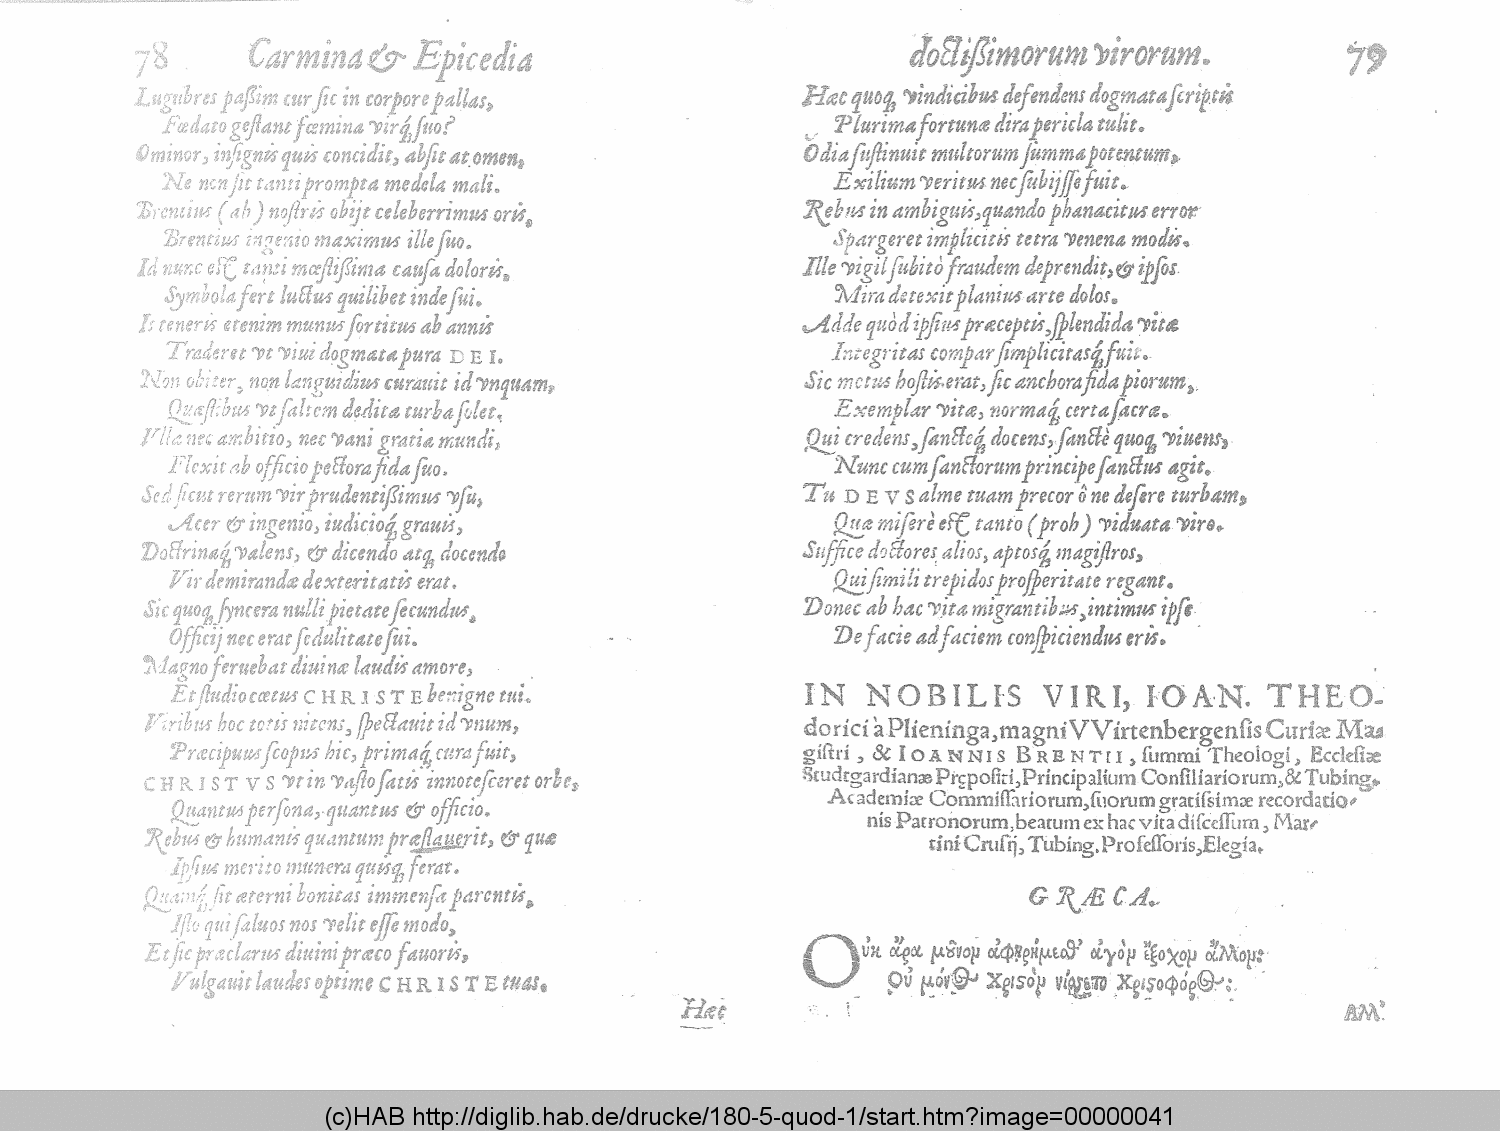 78 Carmina & Epicedia
Lugubres paßim cur sic in corpore pallas,
Fœdato gestant fœmina virq́; suo?
Ominor, insignis quis concidit, absit at omen,
Ne non sit tanti prompta medela mali.
Brentius (ah) nostris obijt celeberrimus oris,
Brentius ingenio maximus ille suo.
Id nunc est tanti mœstißima causa doloris,
Symbola fert luctus quilibet inde sui.
Is teneris etenim munus sortitus ab annis
Traderet vt viui dogmata pura DEI.
Non obiter, non languidius curauit id vnquam,
Quæstibus vt saltem dedita turba solet,
Vlla nec ambitio, nec vani gratia mundi,
Flexit ab officio pectora fida suo.
Sed sicut rerum vir prudentißimus vsu,
Acer & ingenio, iudicioq́; grauis,
Doctrinaq́; valens, & dicendo atq; docendo
Vir demirandæ dexteritatis erat.
Sic quoq; syncera nulli pietate secundus,
Officij nec erat sedulitate sui.
Magno feruebat diuinæ laudis amore,
Et studio cœtus CHRISTE benigne tui.
Viribus hoc totis nitens, spectauit id vnum,
Præcipuus scopus hic, primaq́; cura fuit,
CHRISTVS vt in vasto satis innotesceret orbe,
Quantus persona, quantus & officio.
Rebus & humanis quantum præstauerit, & quæ
Ipsius merito munera quisq; ferat.
Quamq́; sit æterni bonitas immensa parentis,
Isto qui saluos nos velit esse modo,
Et sic præclarus diuini præco fauoris,
Vulgauit laudes optime CHRISTE tuas.
Hæc
doctißimorum virorum. 79
Hæc quoq; vindicibus defendens dogmata scriptis
Plurima fortunæ dira pericla tulit.
Odia sustinuit multorum summa potentum,
Exilium veritus nec subijsse fuit.
Rebus in ambiguis, quando phanacitus error
Spargeret implicitis tetra venena modis.
Ille vigil subitò fraudem deprendit, & ipsos
Mira detexit planius arte dolos.
Adde quòd ipsius præceptis, splendida vitæ
Integritas compar simplicitasq́; fuit.
Sic metus hostis erat, sic anchora fida piorum,
Exemplar vitæ, normaq́; certa sacræ.
Qui credens, sancteq́; docens, sanctè quoq; viuens,
Nunc cum sanctorum principe sanctus agit.
Tu DEVS alme tuam precor ô ne desere turbam,
Quæ miserè est tanto (proh) viduata viro.
Suffice doctores alios, aptosq́; magistros,
Qui simili trepidos prosperitate regant.
Donec ab hac vita migrantibus, intimus ipse
De facie ad faciem conspiciendus eris.
IN NOBILIS VIRI, IOAN. THEO-
dorici à Plieninga, magni VVirtenbergensis Curiæ Ma-
gistri, & IOANNIS BRENTII, summi Theologi, Ecclesiæ
Studtgardianæ Prępositi, Principalium Consiliariorum, & Tubing.
Academiæ Commissariorum, suorum gratissimæ recordatio-
nis Patronorum, beatum ex hac vita discessum, Mar-
tini Crusij, Tubing. Professoris, Elegia.
GRÆCA.
Οὐκ ἄρα μοῦνον ἀφῃρήμεσθ' ἀγὸν ἔξοχον ἄλλον:
Οὐ μόνος Χριστὸν νίσσετο Χριστοφόρος:
Αλλ'
(c)HAB http://diglib.hab.de/drucke/180-5-quod-1/start.htm?image=00000041